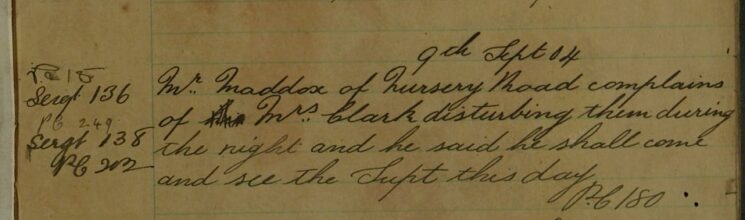 9th Sept 04
PC 15
Sergt 136
PC 249
Sergt 138
PC 202
Mr. Maddox of Nursery Road complains
of Mrs. Clark disturbing them during
the night and he said he shall come
and see the Supt this day
PC 180